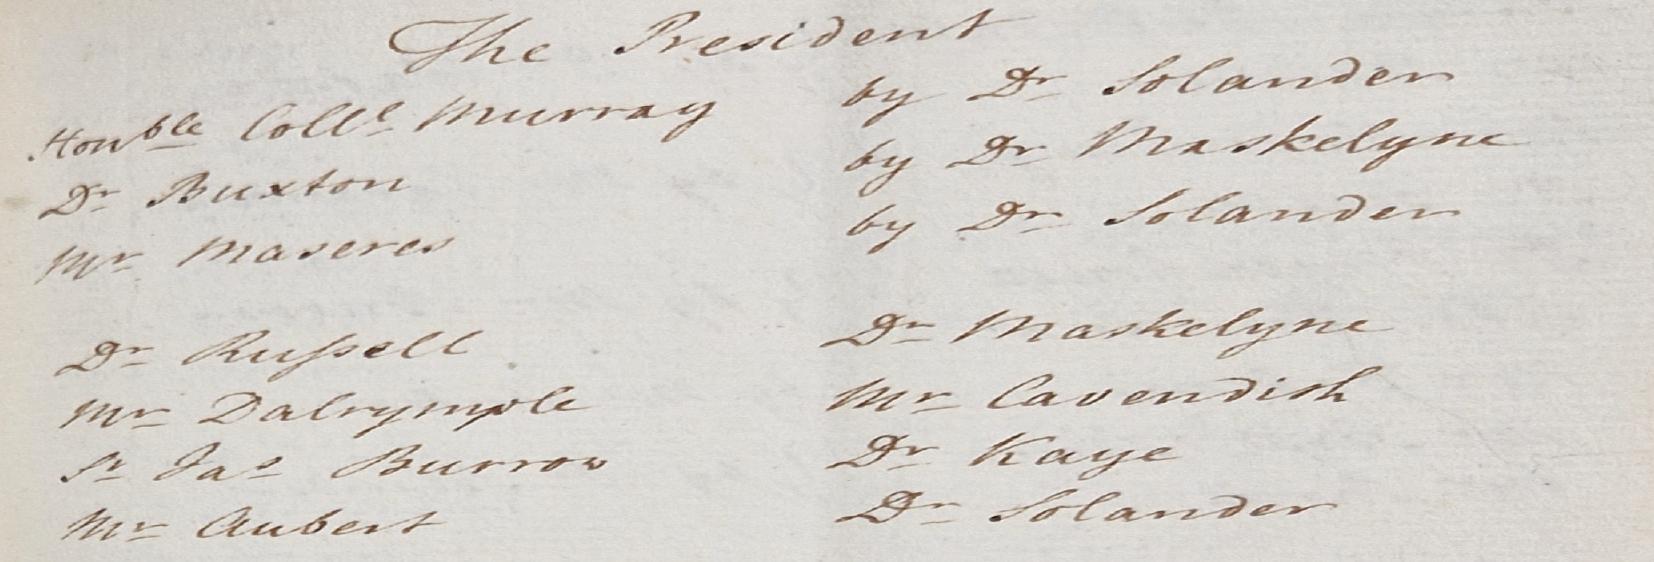 The President
Honble Colll Murray by Dr Solander
Dr Buxton by Dr Maskelyne
Mr Maseres by Dr Solander
Dr Russell Dr Maskelyne
Mr Dalrymple Mr Cavendish
Sr Jas Burrow Dr Kaye
Mr Aubert Dr Solander